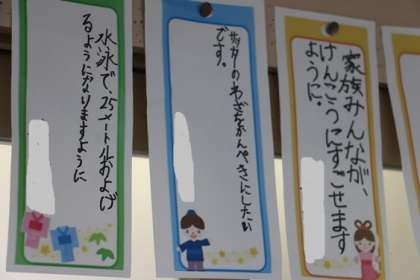 水泳で、25メートルおよげ
るようになりますように
サッカーのわざをかんぺきにしたい
です。
家族みんなが、
けんこうにすごせます
ように。